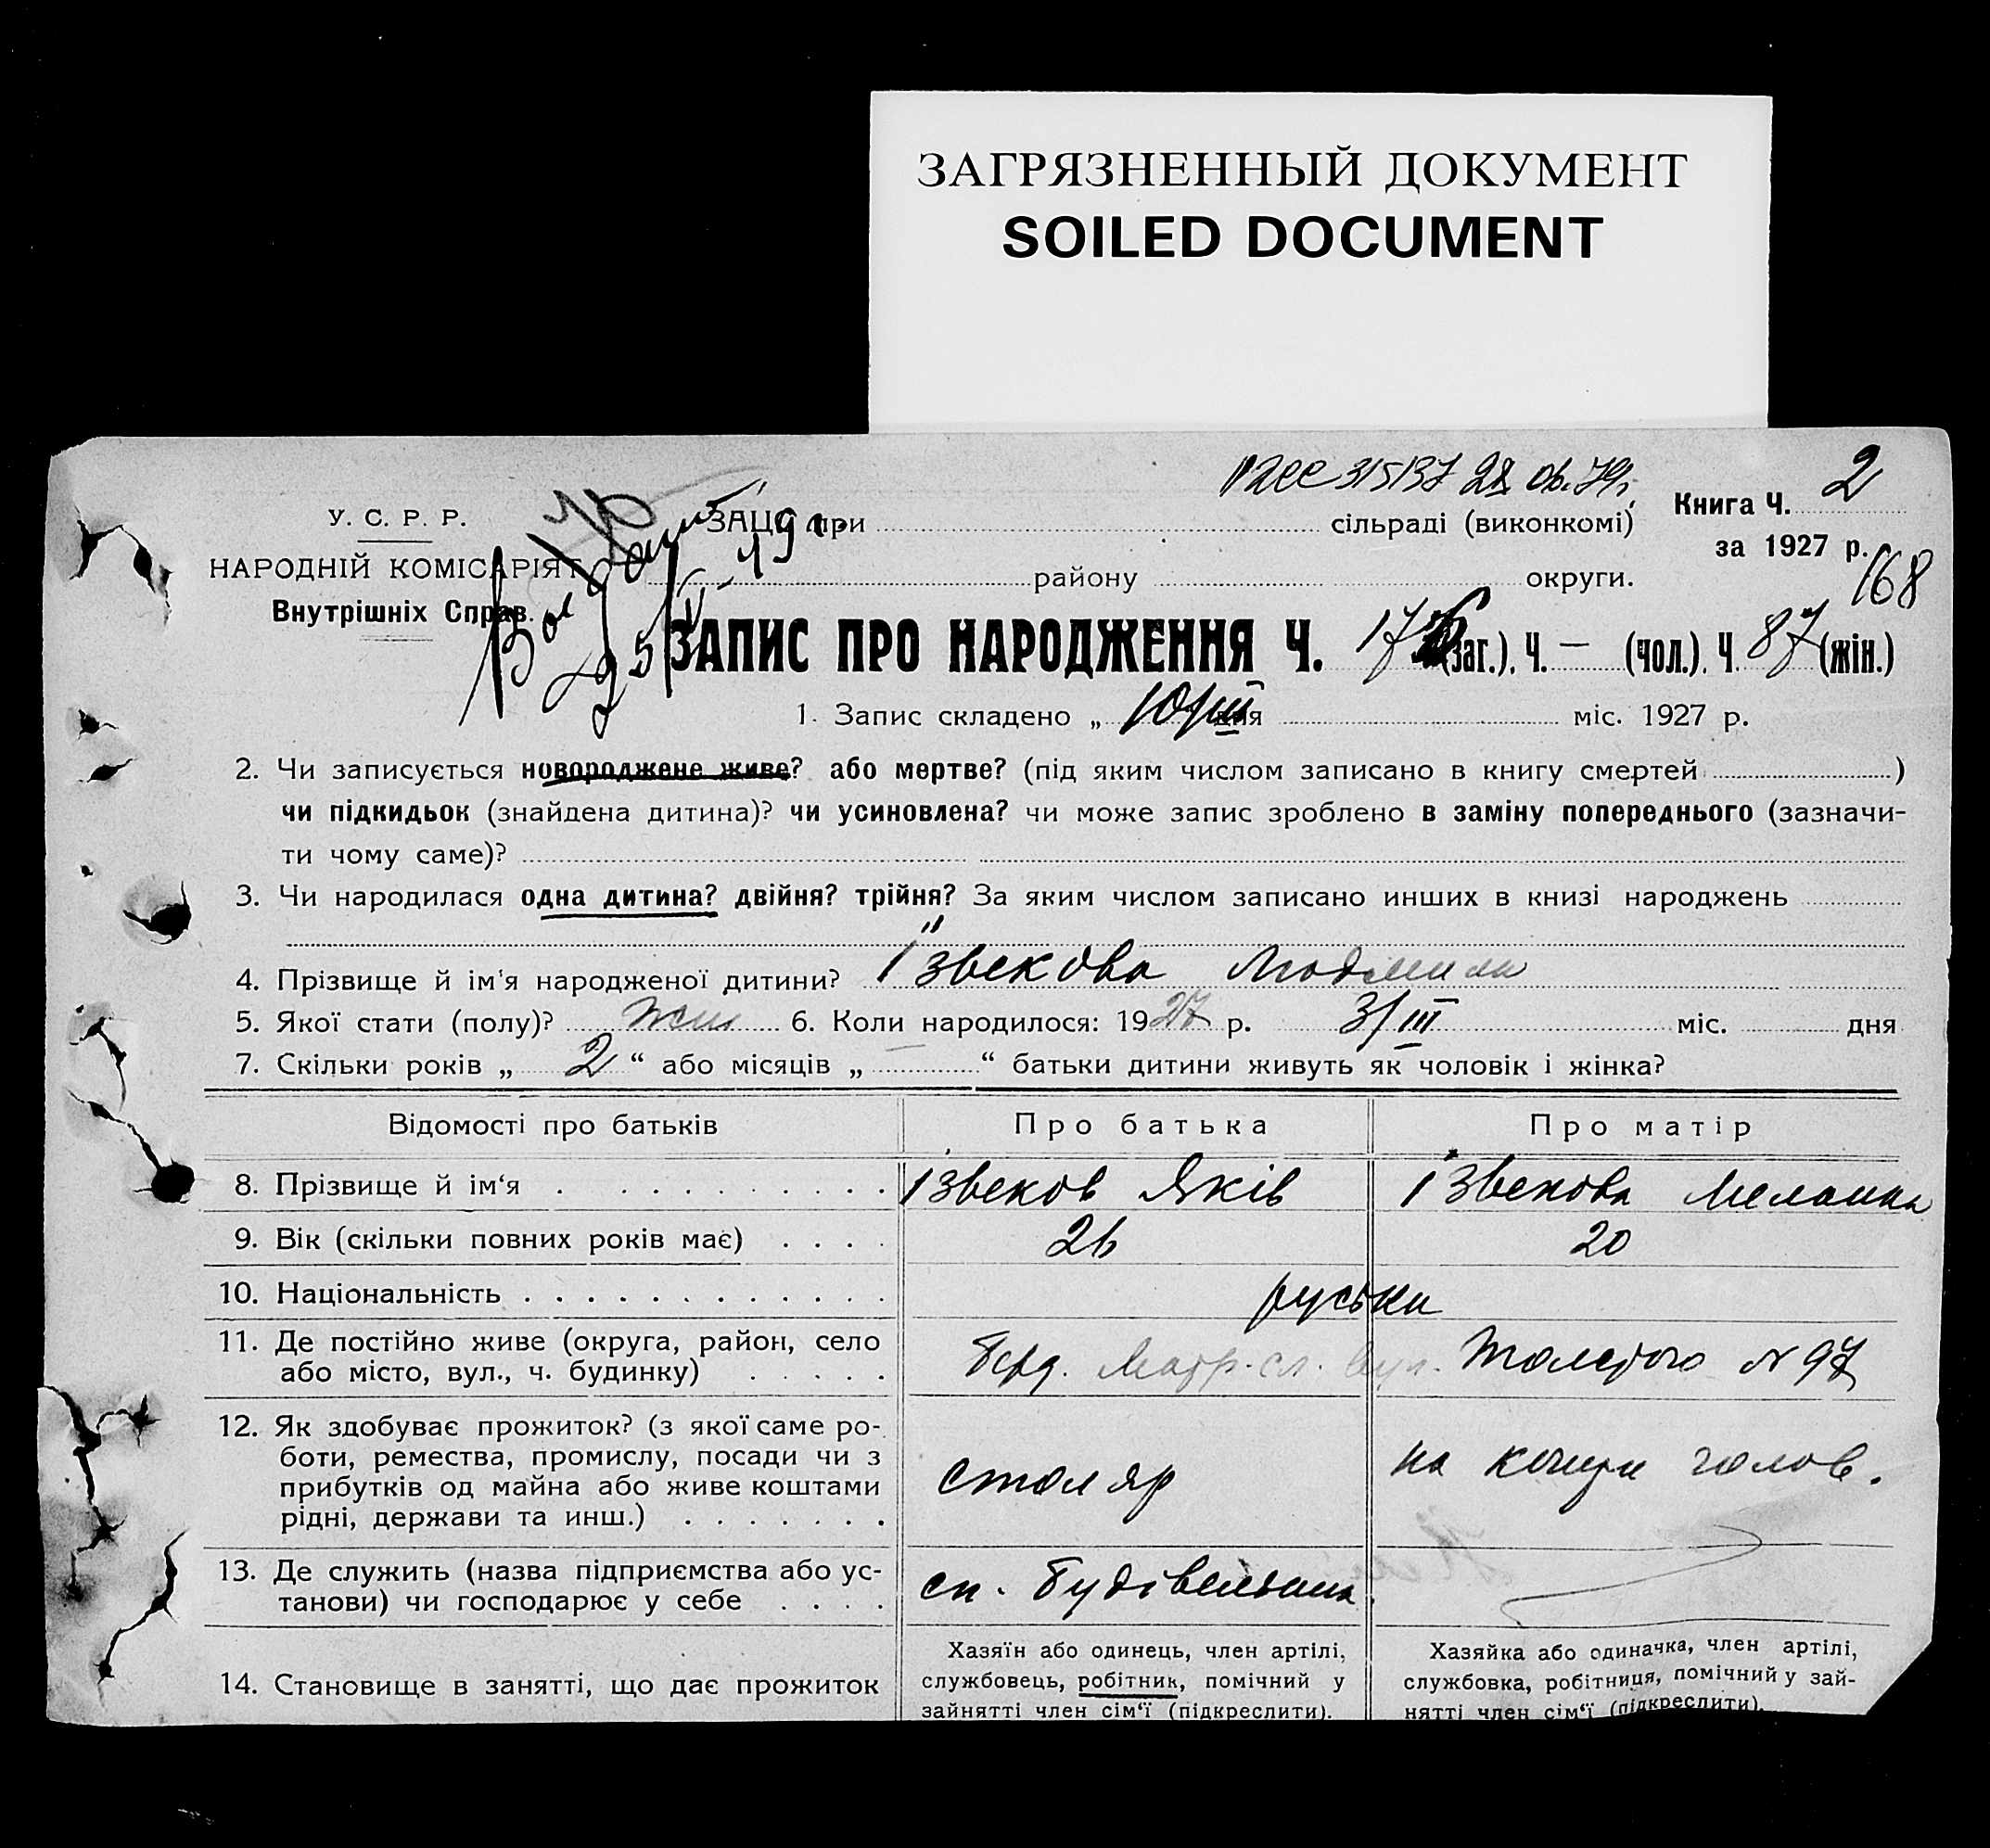 ЗАГРЯЗНЕННЫЙ ДОКУМЕНТ
SOILED DOCUMENT
315137 28 06.79г.
Книга Ч. 2
за 1927 р.
168
У. С. Р. Р.
НАРОДНІЙ КОМІСАРІЯТ
Внутрішніх Справ.
ЗАЦС при сільраді (виконкомі)
району округи.
ЗАПИС ПРО НАРОДЖЕННЯ Ч. (заг.). Ч. — (чол.). Ч. 87 (жін.)
1. Запис складено „ 10/III дня міс. 1927 р.
2. Чи записується новороджене живе? або мертве? (під яким числом записано в книгу смертей )
чи підкидьок (знайдена дитина)? чи усиновлена? чи може запис зроблено в заміну попереднього (зазначи-
ти чому саме)?
3. Чи народилася одна дитина? двійня? трійня? За яким числом записано инших в книзі народжень
4. Прізвище й ім'я народженої дитини? Ізвекова Людмила
5. Якої стати (полу)? жін 6. Коли народилося: 1927 р. 3/III міс. дня
7. Скільки років „ 2 “ або місяців „ “ батьки дитини живуть як чоловік і жінка?
Відомості про батьків Про батька Про матір
8. Прізвище й ім'я Ізвеков Яків Ізвекова Меланка
9. Вік (скільки повних років має) 26 20
10. Національність руськи
11. Де постійно живе (округа, район, село
або місто, вул., ч. будинку)
Берд. вул. Толстого № 97
12. Як здобуває прожиток? (з якої саме ро-
боти, ремества, промислу, посади чи з
прибутків од майна або живе коштами
рідні, держави та инш.)
столяр на кошти голов.
13. Де служить (назва підприємства або ус-
танови) чи господарює у себе
сп.
14. Становище в занятті, що дає прожиток
Хазяїн або одинець, член артілі,
службовець, робітник, помічний у
зайнятті член сім'ї (підкреслити).
Хазяйка або одиначка, член артілі,
службовка, робітниця, помічний у зай-
нятті член сім'ї (підкреслити).